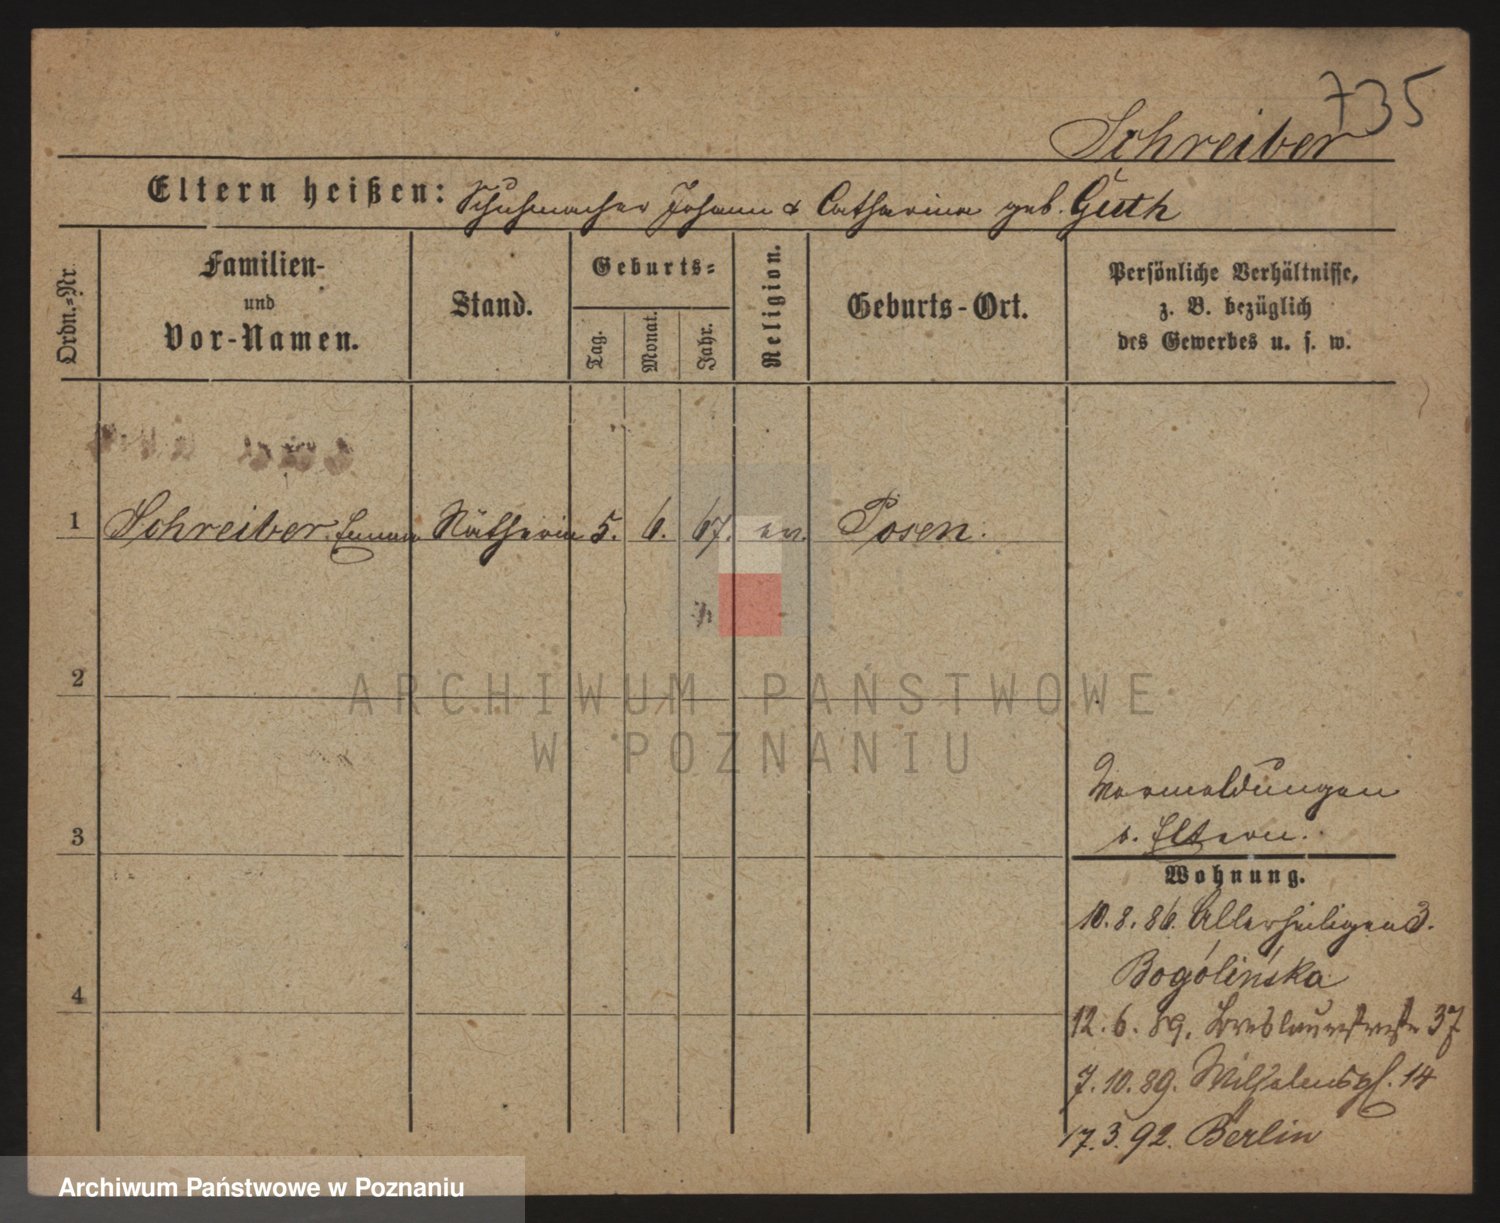 735
Schreiber
Eltern heißen: Schuhmacher Johann & Catharina geb. Guth
Ordn.-Nr
Familien-
und
Vor-Namen.
Stand.
Geburts-
Tag.
Monat.
Jahr.
Religion.
Geburts-Ort.
Persönliche Verhältnisse,
z. B. bezüglich
des Gewerbes u. s. w.
1 Schreiber Emma Nätherin 5. 6. 67. ev. Posen.
2
ARCHIWUM PAŃSTWOWE
W POZNANIU
Vormeldungen
s. Eltern.
3
Wohnung.
10.8.86. Allerheiligen 3.
Bogolińska
4
12.6.89. Breslauerstraße 37
7.10.89. Wilhelmspl. 14
17.3.92. Berlin
Archiwum Państwowe w Poznaniu